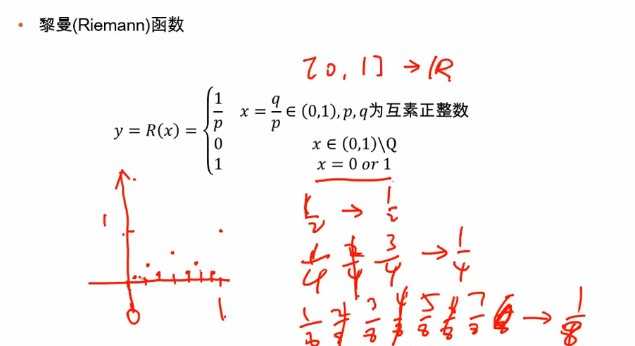 • 黎曼(Riemann)函数
[0, 1] → R
y = R(x) = { 1/p x = q/p ∈ (0,1), p, q为互素正整数
0 x ∈ (0,1)\Q
1 x = 0 or 1
1/2 → 1/2
1/4 2/4 3/4 → 1/4
1/8 2/8 3/8 4/8 5/8 6/8 7/8 → 1/8
1
0 1